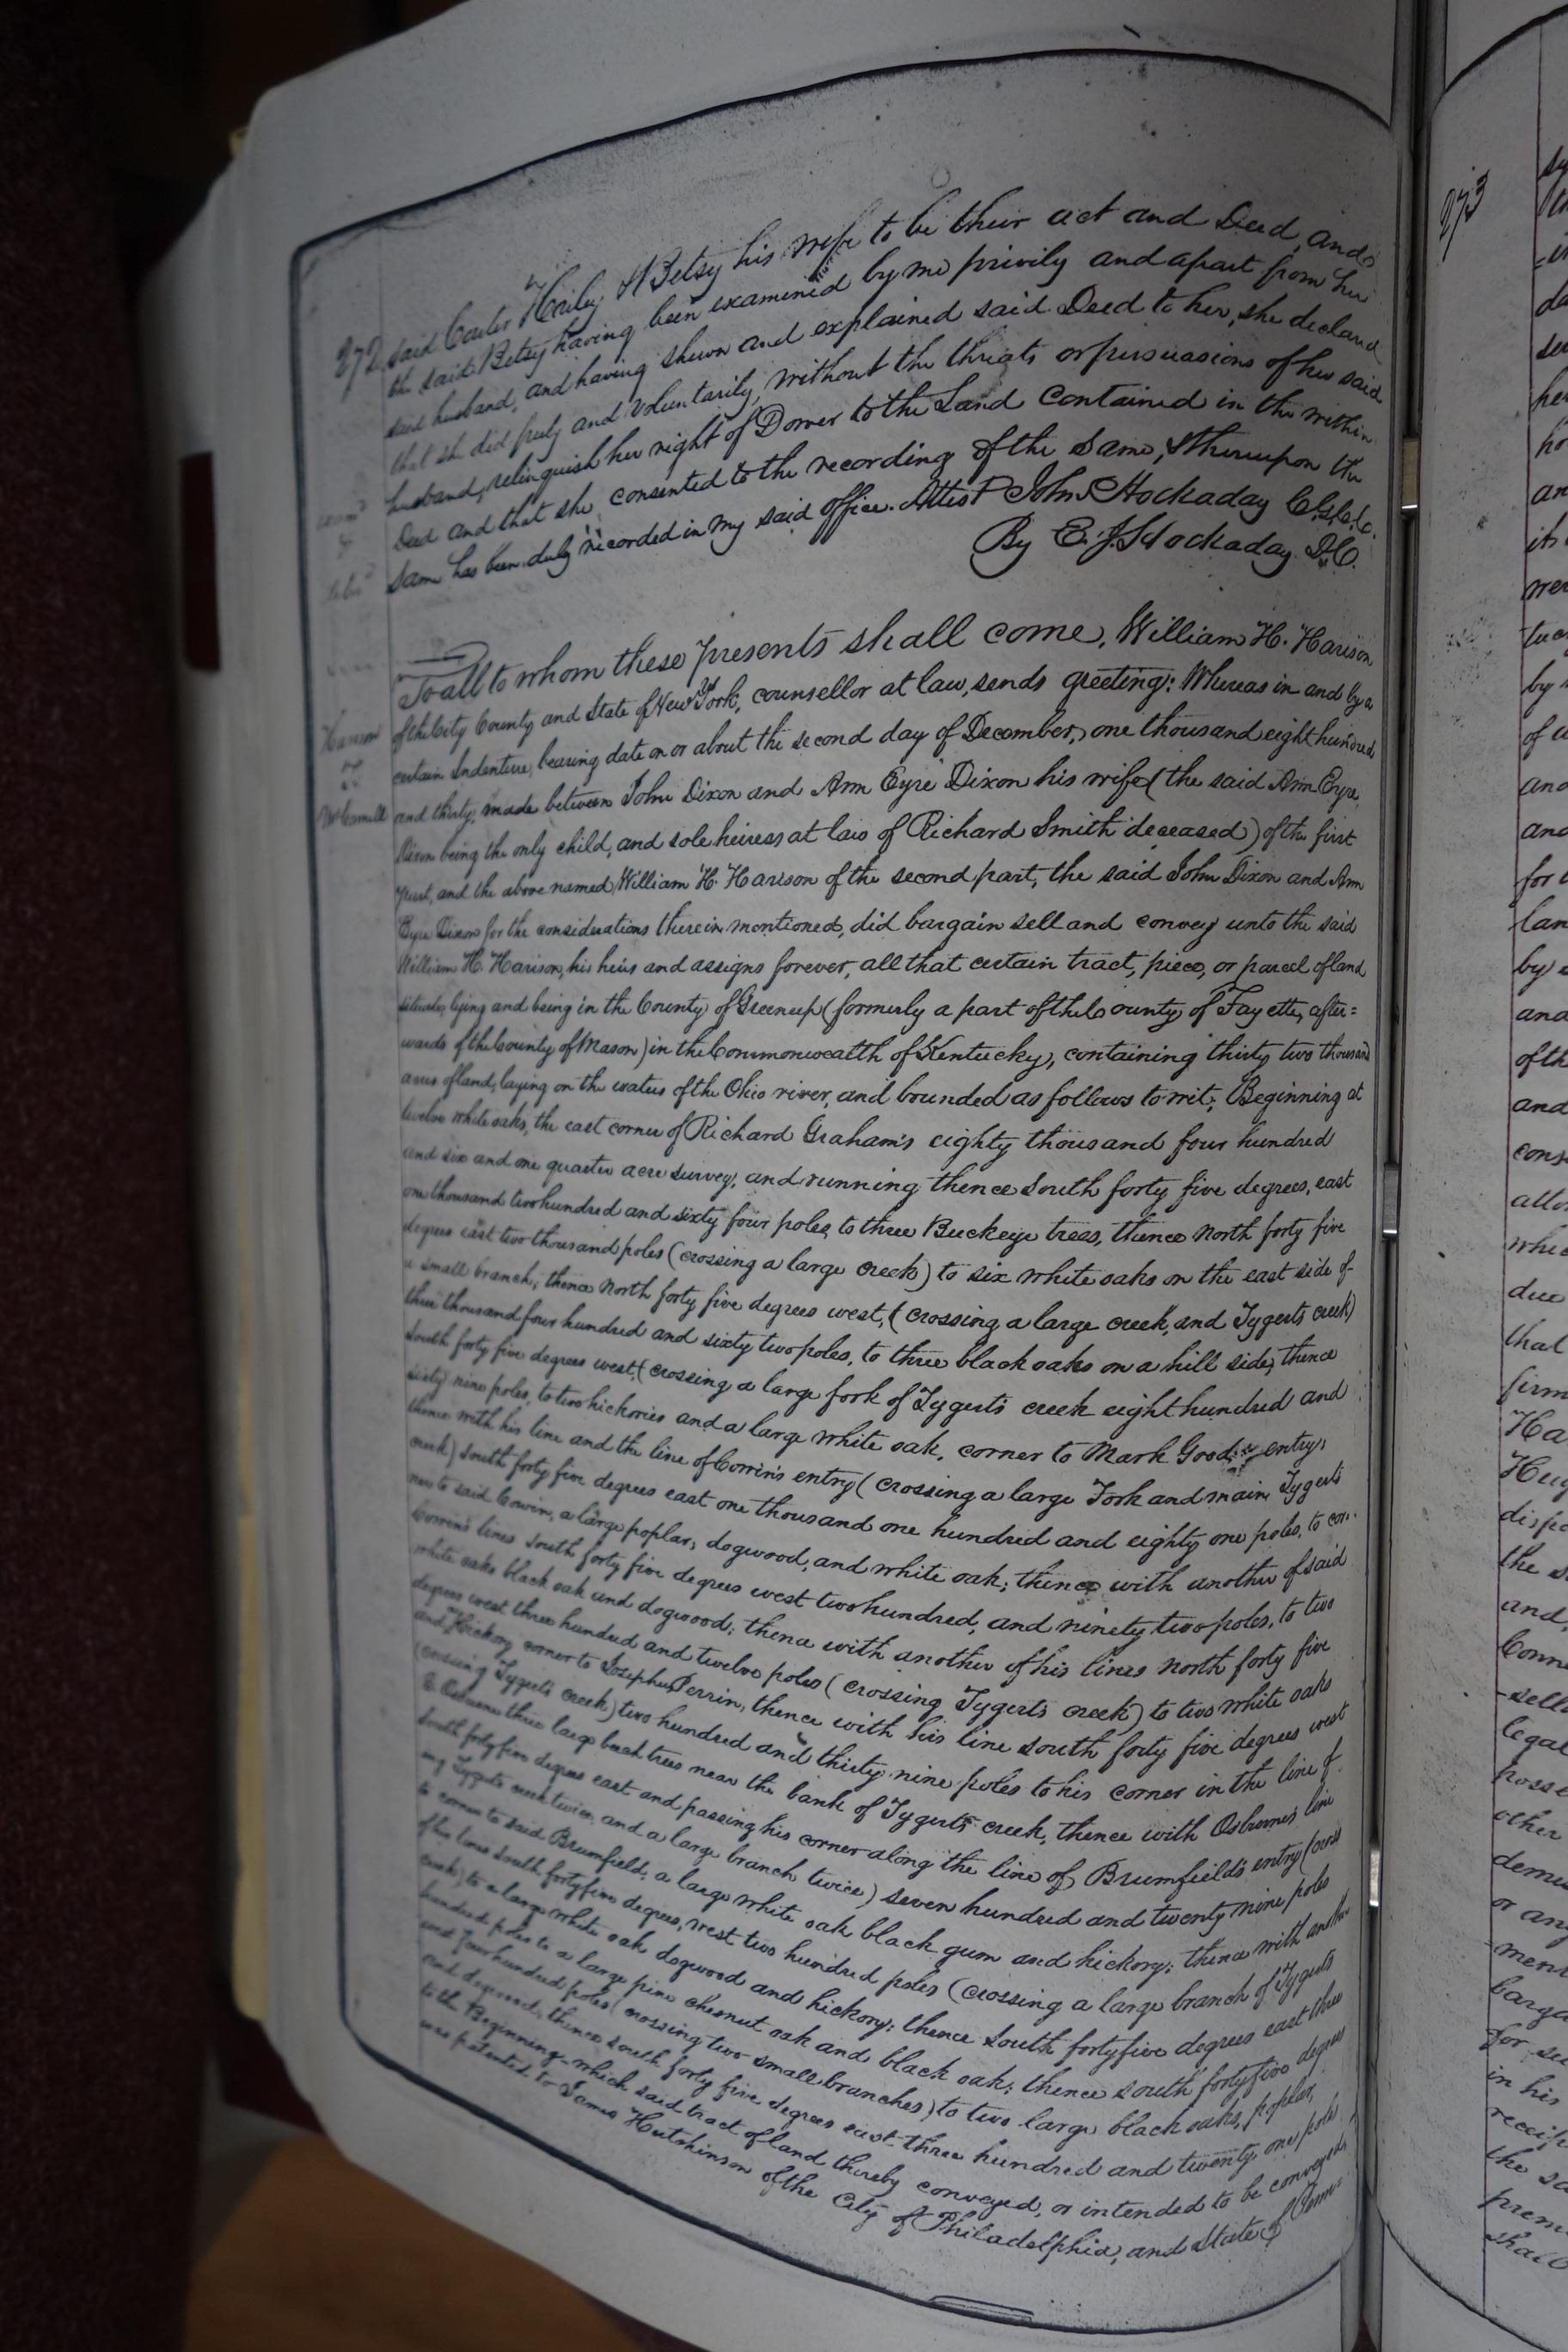 272 said Carter Haily & Betsy his wife to be their act and Deed, and
the said Betsy having been examined by me privily and apart from her
said husband, and having shewn and explained said Deed to her, she declard
that she did freely and voluntarily, without the threats or persuasions of her said
husband, relinquish her right of Dower to the Land contained in the within
Deed and that she consented to the recording of the same, & thereupon the
same has been duly recorded in my said office. Attest John Hockaday C.G.C.C.
By E. J. Hockaday D.C.
To all to whom these presents shall come, William H. Harison
Harison
of the City County and State of New York, counsellor at law, sends greeting: Whereas in and by a
certain Indenture, bearing date on or about the second day of December, one thousand eight hundred
and thirty, made between John Dixon and Ann Eyre Dixon his wife (the said Ann Eyre
Dixon being the only child, and sole heiress at law of Richard Smith deceased) of the first
part, and the above named William H. Harison of the second part, the said John Dixon and Ann
Eyre Dixon for the considerations therein mentioned, did bargain sell and convey unto the said
William H. Harison, his heirs and assigns forever, all that certain tract, piece, or parcel of land
situate, lying and being in the County of Greenup (formerly a part of the County of Fayette, after=
wards of the County of Mason) in the Commonwealth of Kentucky, containing thirty two thousand
acres of land, laying on the waters of the Ohio river, and bounded as follows to wit; Beginning at
twelve white oaks, the east corner of Richard Graham's eighty thousand four hundred
and six and one quarter acre survey, and running thence South forty five degrees, east
one thousand two hundred and sixty four poles, to three Buckeye trees, thence North forty five
degrees east two thousand poles (crossing a large creek) to six white oaks on the east side of
a small branch; thence North forty five degrees west, (crossing a large creek, and Tygerts creek)
three thousand four hundred and sixty two poles, to three black oaks on a hill side, thence
South forty five degrees west, (crossing a large fork of Tygerts creek eight hundred and
sixty nine poles, to two hickories and a large white oak, corner to Mark entry,
thence with his line and the line of Corwin's entry (crossing a large Fork and main Tygerts
creek) South forty five degrees east one thousand one hundred and eighty one poles, to cor-
ner to said Corwin, a large poplar, dogwood, and white oak; thence with another of said
Corwins lines South forty five degrees west two hundred, and ninety two poles, to two
white oaks black oak and dogwood; thence with another of his lines north forty five
degrees west three hundred and twelve poles (crossing Tygerts creek) to two white oaks
and Hickory corner to Josephus Perrin, thence with his line South forty five degrees west
(crossing Tygerts creek) two hundred and thirty nine poles to his corner in the line of
three large beech trees near the bank of Tygerts creek, thence with Osburnes line
South forty five degrees east and passing his corner along the line of Brumfields entry (cross
ing Tygerts creek twice, and a large branch twice) seven hundred and twenty nine poles
to corner to said Brumfield, a large white oak black gum and hickory; thence with another
of his lines South forty five degrees, west two hundred poles (crossing a large branch of Tygerts
creek) to a large white oak dogwood and hickory; thence South forty five degrees east three
hundred poles to a large pine chesnut oak and black oak; thence South forty five degrees
west four hundred poles (crossing two small branches) to two large black oaks, poplar,
and dogwood, thence South forty five degrees east three hundred and twenty one poles
to the Beginning. which said tract of land thereby conveyed, or intended to be conveyed,
was patented to James Hutchinson of the City of Philadelphia, and State of Penn-
273